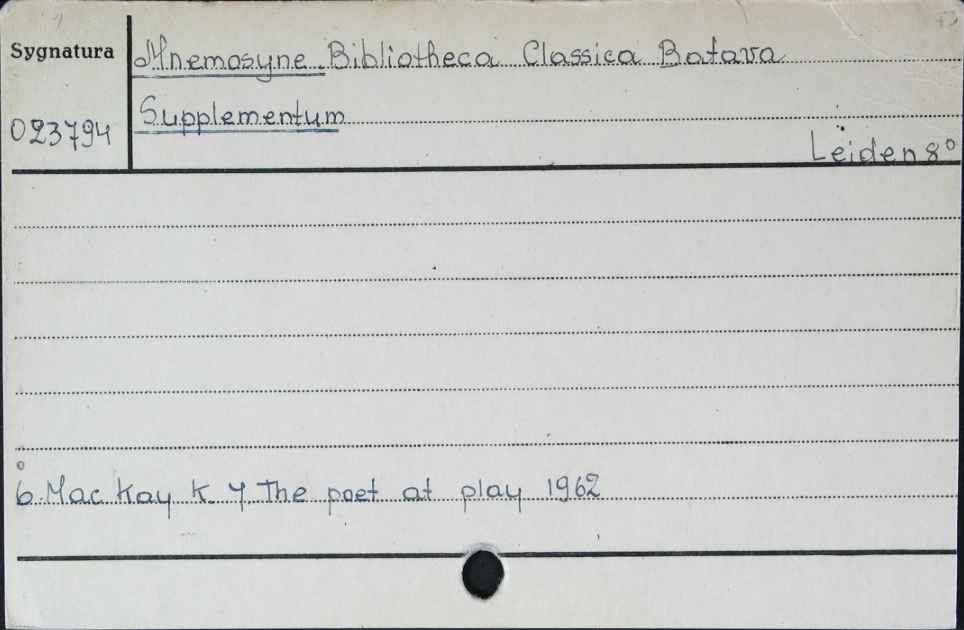 Sygnatura
Mnemosyne Bibliotheca Classica Batava
Supplementum
023794
Leiden 8°
6. Mac Kay K. J. The poet at play 1962